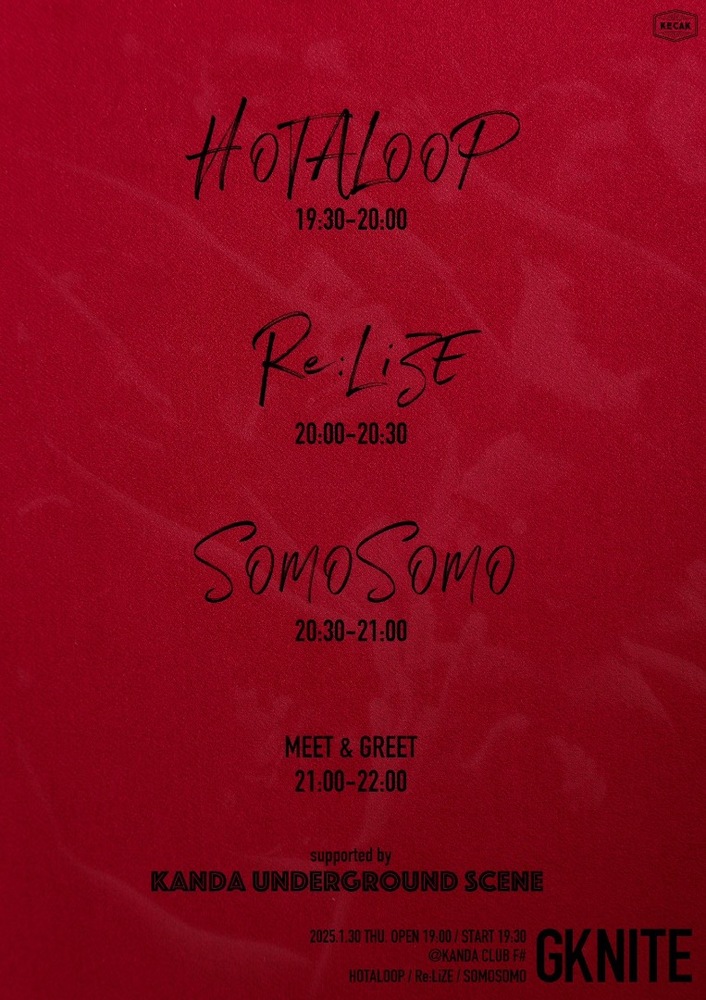 KECAK
HOTALOOP
19:30-20:00
Re:LiZE
20:00-20:30
SOMOSOMO
20:30-21:00
MEET & GREET
21:00-22:00
supported by
KANDA UNDERGROUND SCENE
2025.1.30 THU. OPEN 19:00 / START 19:30
@KANDA CLUB F#
HOTALOOP / Re:LiZE / SOMOSOMO
GKNITE